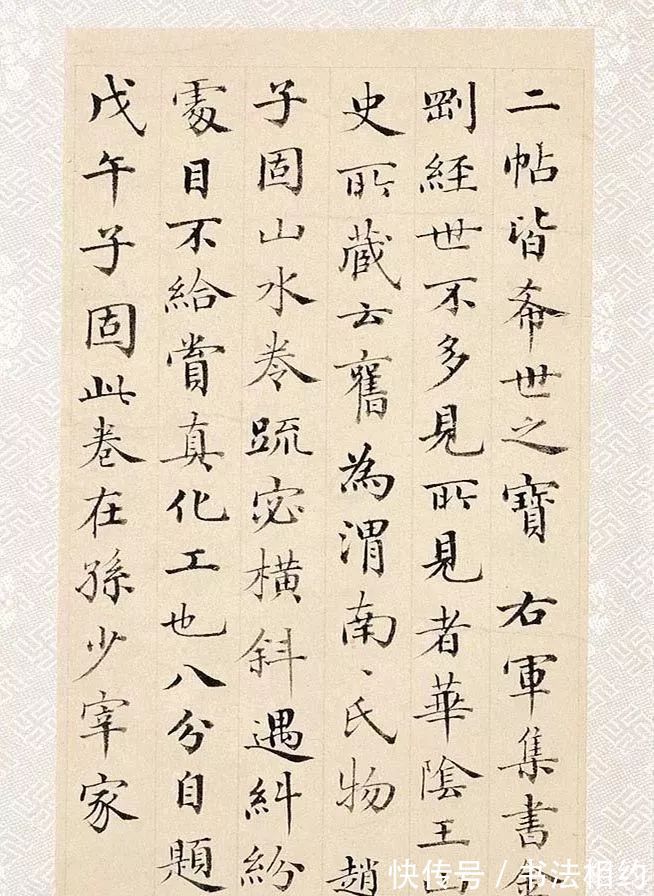 二帖皆希世之寶 右軍集書金
剛經世不多見所見者華陰王山
史所藏云舊為渭南〻氏物趙
子固山水卷疏宓橫斜遇糾紛
處目不給賞真化工也八分自題
戊午子固此卷在孫少宰家
快传号 / 书法相约